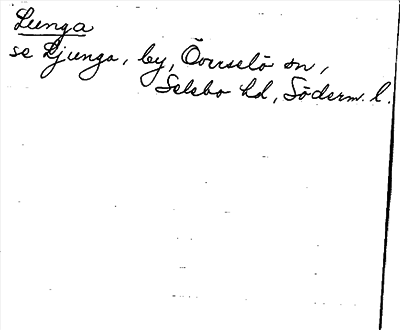 Lunga
se Ljunga, by, Överselö sn,
Selebo hd, Söderm. l.